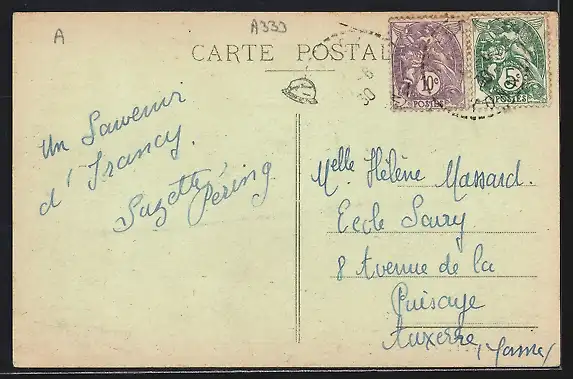 A
A333
CARTE POSTALE
10c
POSTES
5c
POSTES
Un Souvenir
d'Irancy.
Suzette Péring
Melle Hélène Massard.
Ecole Savry
8 Avenue de la
Puisaye
Auxerre, (Yonne)